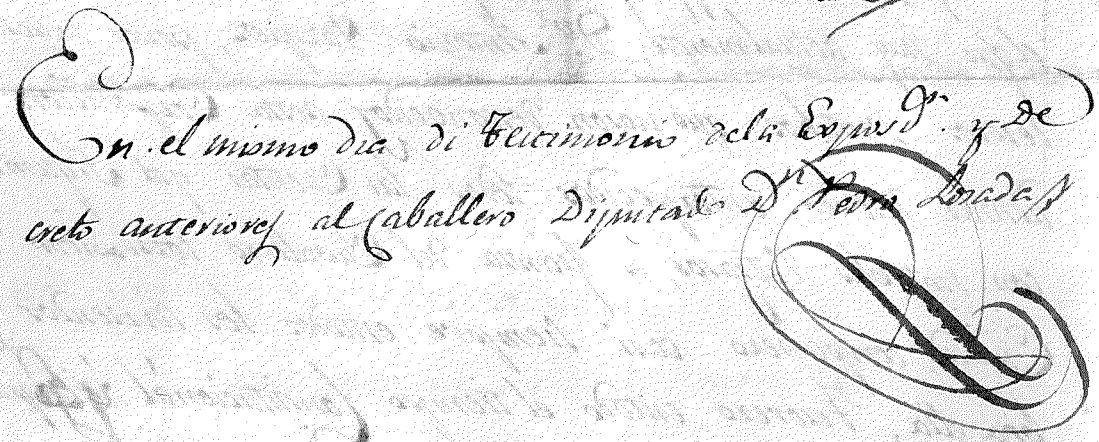 En el mismo dia di Testimonio dela Exposon. y De
creto anteriores al Caballero Diputado Dn Pedro Losada